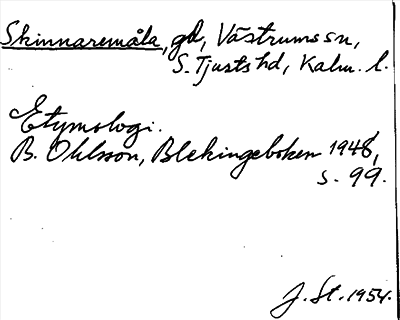 Skinnaremåla, gd, Västrums sn,
S. Tjusts hd, Kalm. l.
Etymologi.
B. Ohlsson, Blekingeboken 1948,
s. 99.
J. St. 1954.